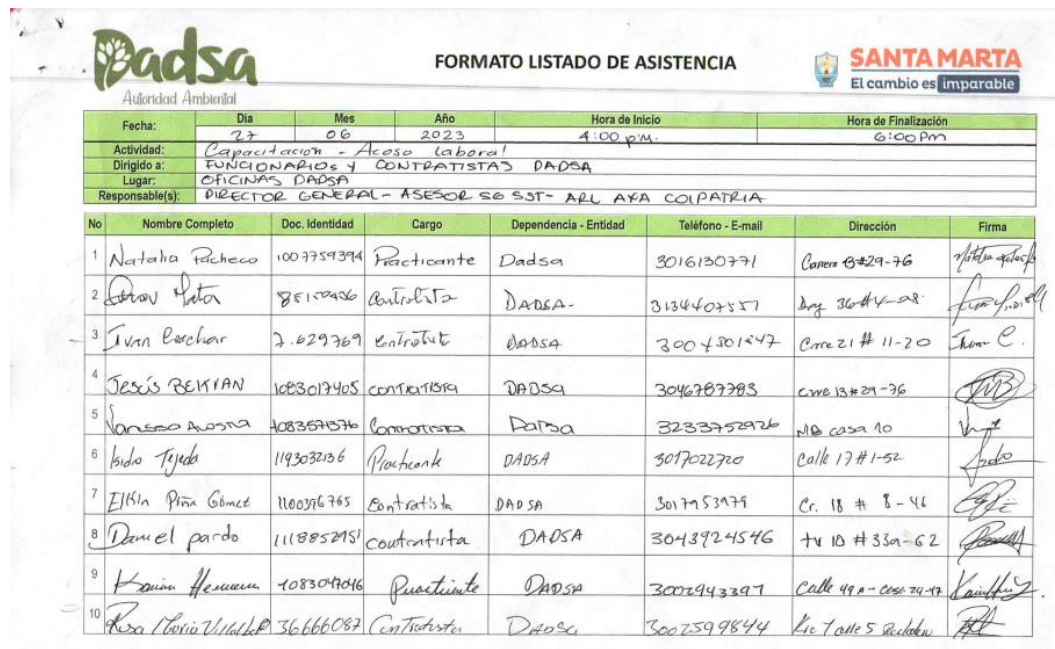 Dadsa
Autoridad Ambiental
FORMATO LISTADO DE ASISTENCIA
SANTA MARTA
El cambio es imparable
Fecha: Día Mes Año Hora de Inicio Hora de Finalización
27 06 2023 4:00 p.m. 6:00 Pm
Actividad: Capacitacion - Acoso laboral
Dirigido a: FUNCIONARIOS Y CONTRATISTAS DADSA
Lugar: OFICINAS DADSA
Responsable(s): DIRECTOR GENERAL - ASESOR SG SST - ARL AXA COLPATRIA
No Nombre Completo Doc. Identidad Cargo Dependencia - Entidad Teléfono - E-mail Dirección Firma
1 Natalia Pacheco 1007759394 Practicante Dadsa 3016130771 Carrera #29-76
2 Mata DADSA- 3134407557
3 Ivan 7.629769 DADSA # 11-20 Ivan C.
4 Jesús BELTRAN 1083017405 contratista DADSA 3046787783 13#29-76
5 Vanessa Acosta Contratista Dadsa 3233752926 MB casa 10
6 Isidro Tejeda 1193032136 Practicante DADSA 3017022720 Calle 17 #1-52
7 Elkin Piña Gómez 1100396765 Contratista DADSA 3017953979 Cr. 18 # 8-46
8 Daniel pardo contratista DADSA 3043924546 tv 10 #33a-62
9 1083047046 DADSA 3002943397 Calle 49A - casa
10 Rosa Maria 36666087 Contratista DADSA 3002599844